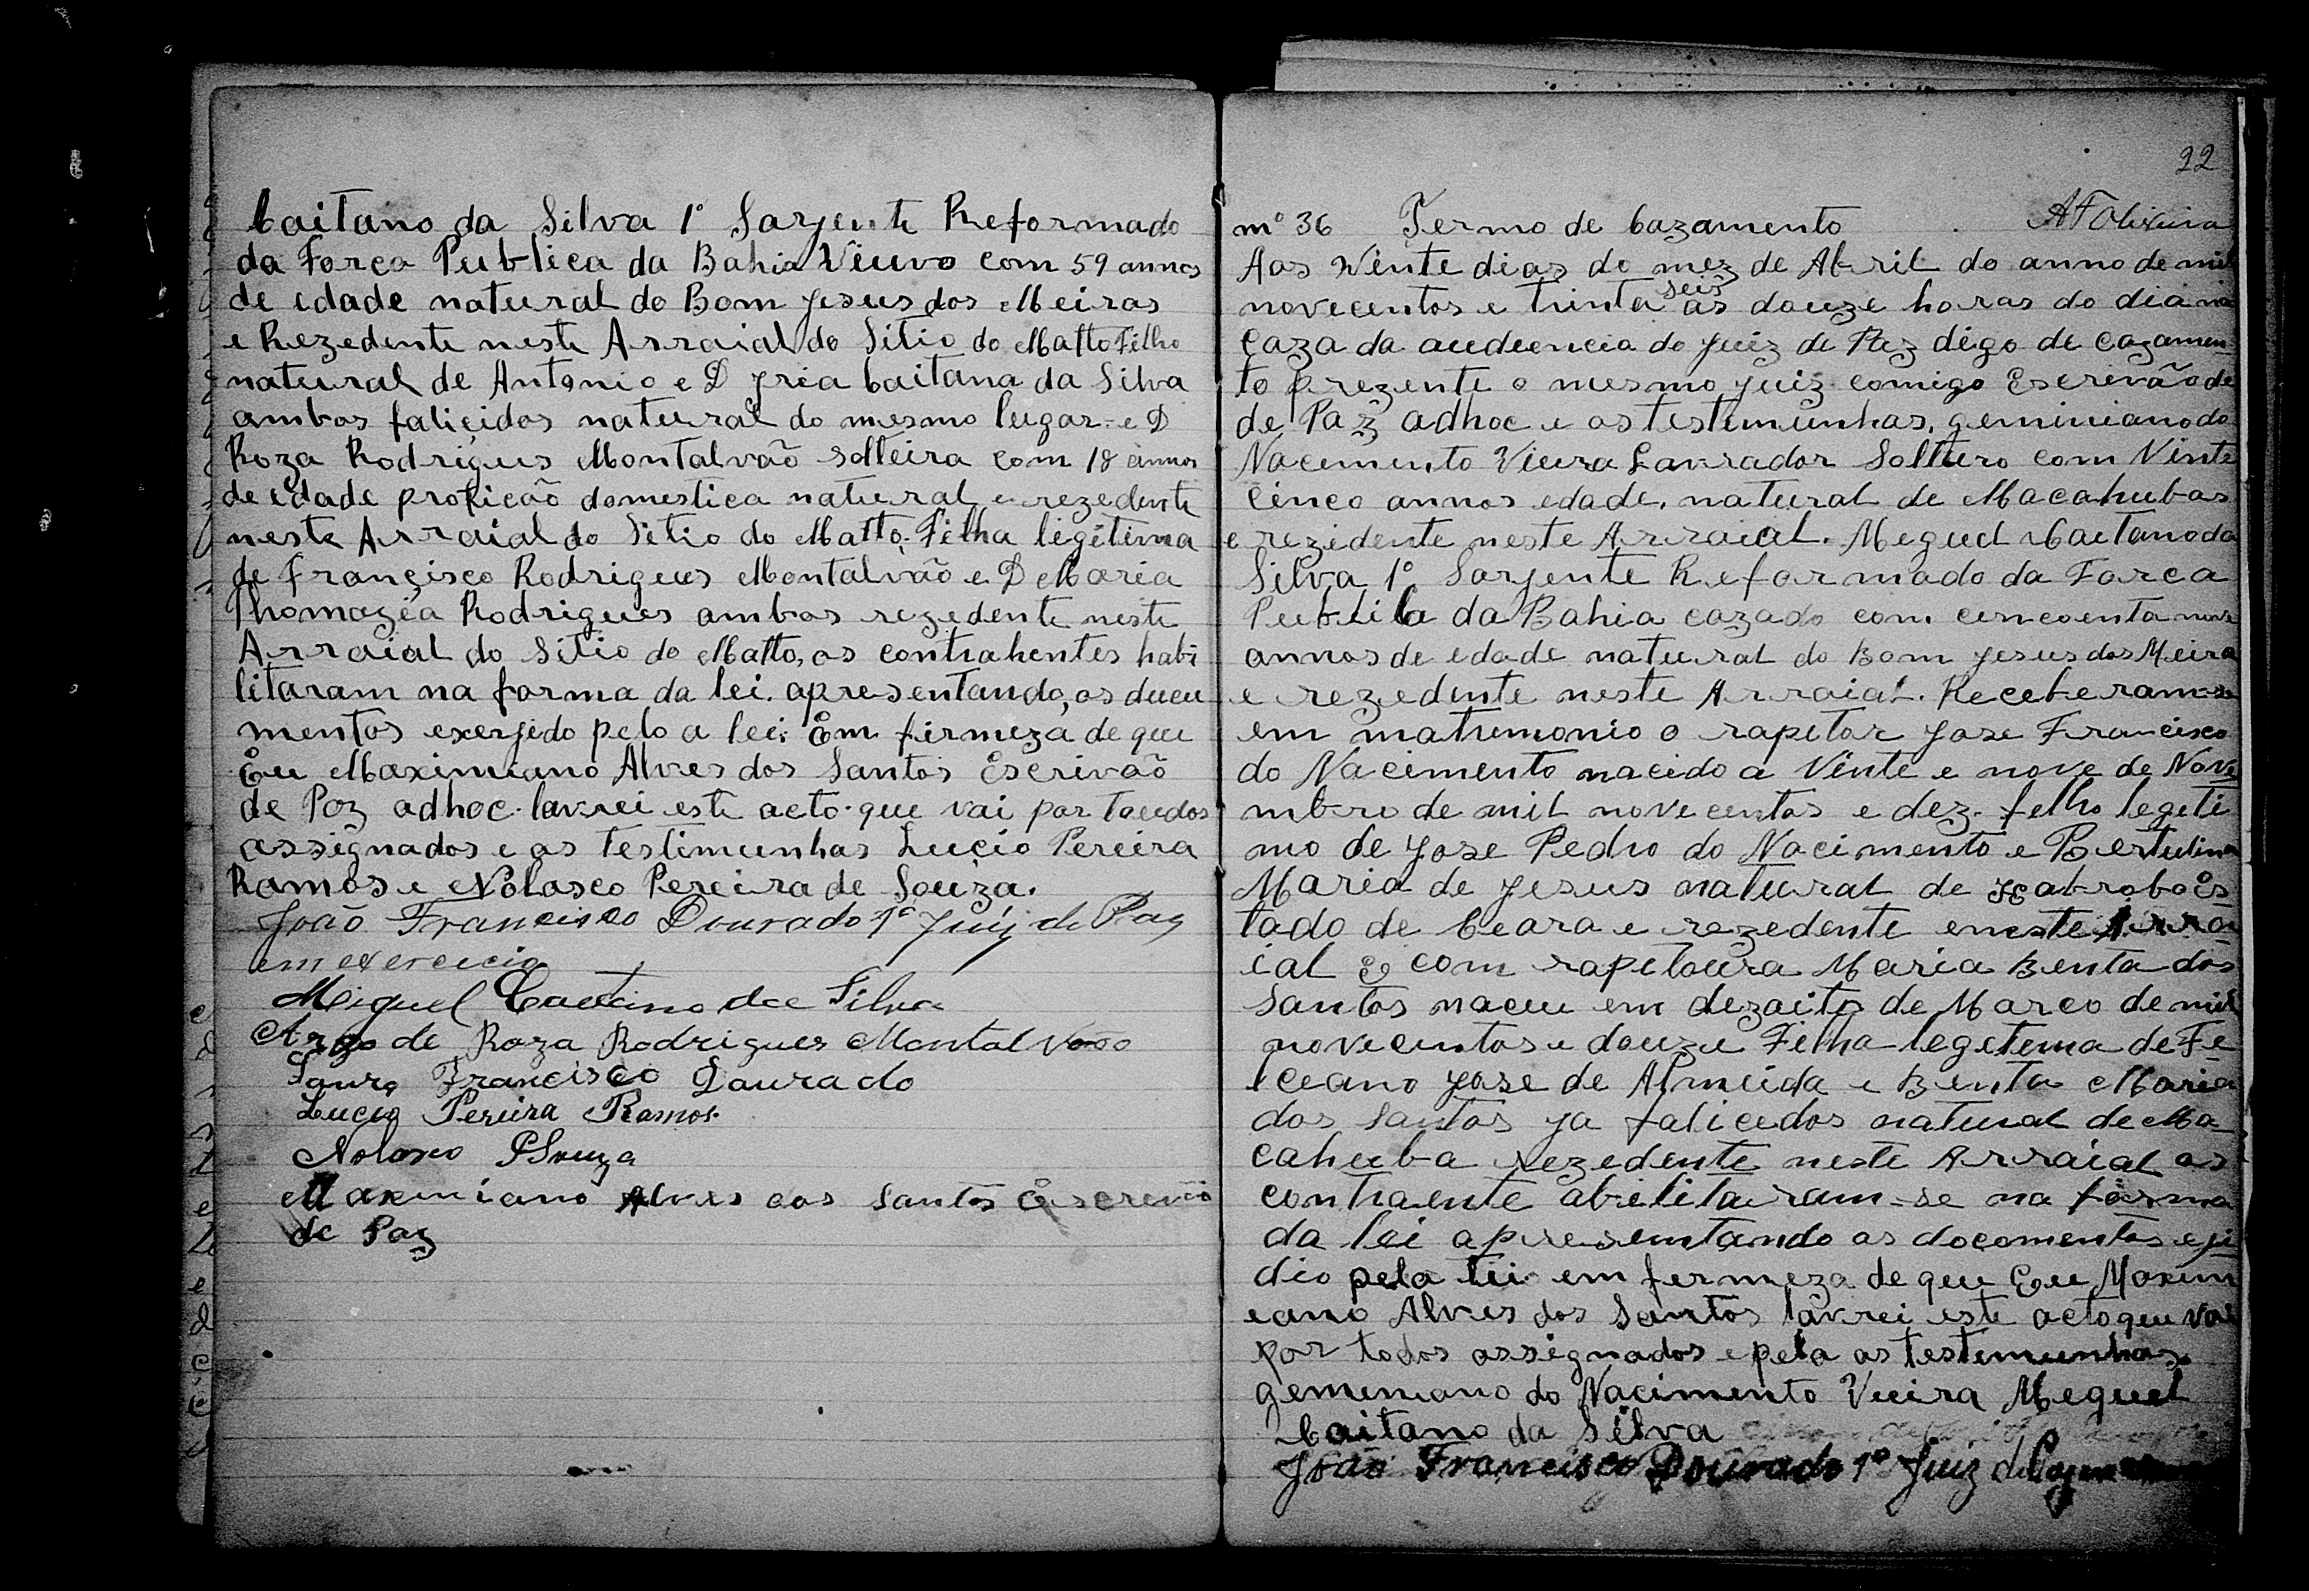 Caitano da Silva 1º Sarjente Reformado
da Forca Publica da Bahia Viuvo com 59 annos
de edade natural do Bom Jesus dos Meiras
e Rezedente neste Arraial do Sitio do Matto Filho
natural de Antonio e D Jria Caitana da Silva
ambos falicidos natural do mesmo lugar = e D
Roza Rodrigues Montalvão solteira com 18 annos
de edade proficão domestica natural e rezedente
neste Arraial do Sitio do Matto. Filha legitima
de Francisco Rodrigues Montalvão e D Maria
Thomazia Rodrigues ambos rezedente neste
Arraial do Sitio do Matto, os contrahentes habi
litaram na forma da lei. apresentando, os ducu
mentos exerjido pelo a lei. Em firmeza de que
Eu Maximiano Alves dos Santos Escrivão
de Paz adhoc. lavrei este acto. que vai por toudos
assignados e as testimunhas Lucio Pereira
Ramos e Nolasco Pereira de Souza.
João Francisco Dourado 1º Juiz de Paz
em exercicio
Miguel Caetano da Silva
Argo de Roza Rodrigues Montalvão
Lauro Francisco Dourado
Lucio Pereira Ramos
Nolasco PSouza
Maximiano Alves dos Santos Escrevão
de Paz
22
nº 36 Termo de Cazamento AFOliveira
Aos Vinte dias do mez de Abril do anno de mil
novecentos e trinta seis as douze horas do dia na
Caza da audiencia do Juiz de Paz digo de cazamen
to prezente o mesmo juiz comigo Escrivão de
de Paz adhoc e as testimunhas, geminiano do
Nacimento Vieira Lavrador Soltero com Vinte
cinco annos edade. natural de Macahubas
e rezidente neste Arraial. Meguel Caetano da
Silva 1º Sarjente Reformado da Forca
Publica da Bahia cazado com cincoenta nove
annos de edade natural do Bom Jesus dos Meira
e rezedente neste Arraial. Receberam-se
em matrimonio o rapitor Jose Francisco
do Nacimento nacido a Vinte e nove de Nove
mbro de mil novecentos e dez. felho legeti
mo de Jose Pedro do Nacimento e Bertulina
Maria de Jesus natural de Cabrobo Es
tado de Ceara e rezedente em este Arra
ial e com rapitoura Maria Benta dos
Santos naceu em dezoito de Marco de mil
novecentos e douze Filha legetema de Fe
liceano Jose de Almeida e Benta Maria
dos Santos ja falicedos natural de Ma
cahuba rezedente neste Arraial os
contraente abilitaram-se na forma
da lei apresentando os documentos eji
dio pela lei em fermeza de que Eu Maxim
eano Alves dos Santos lavrei este acto que vai
por todos assignados e pela as testemunhas
geminiano do Nacimento Vieira Meguel
Caitano da Silva
João Francisco Dourado 1º Juiz de Paz